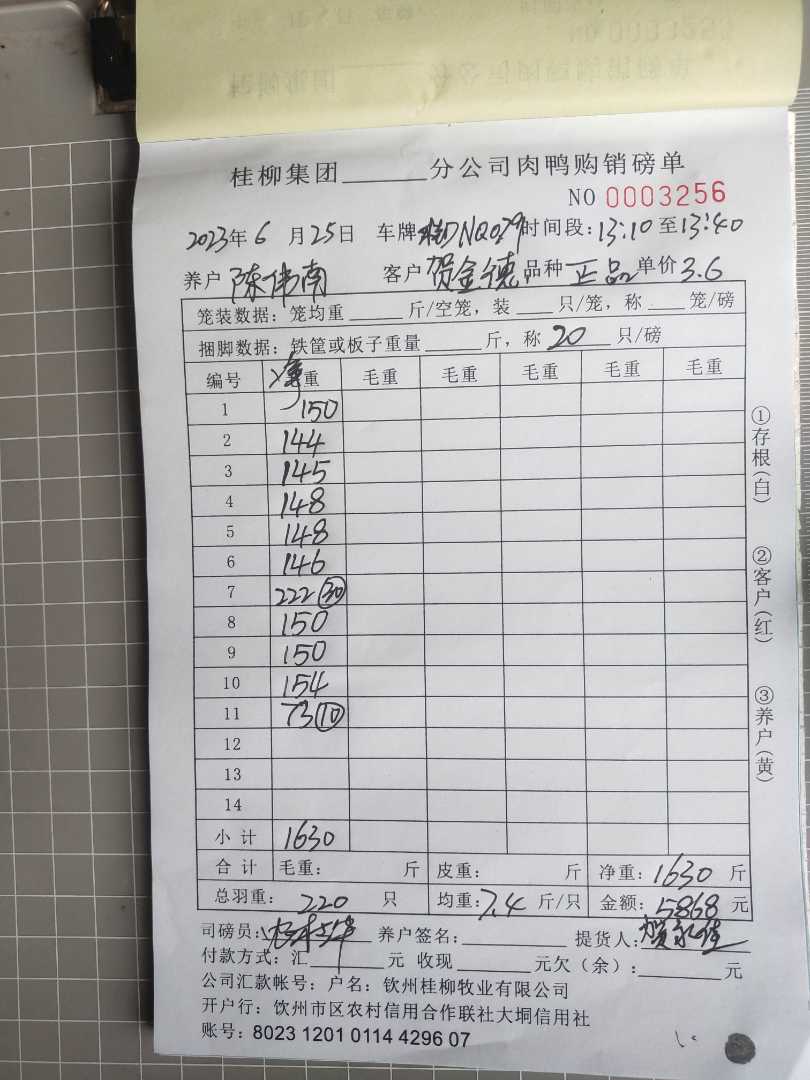 桂柳集团______分公司肉鸭购销磅单
NO 0003256
2023年6月25日 车牌桂DNQ079时间段:13:10至13:40
养户 陈伟南 客户 贺金德 品种 正品 单价3.6
笼装数据:笼均重______斤/空笼,装____只/笼,称____笼/磅
捆脚数据:铁筐或板子重量______斤,称 20 只/磅
编号 净重 毛重 毛重 毛重 毛重 毛重
1 150
2 144
3 145
4 148
5 148
6 146
7 222 ㉚
8 150
9 150
10 154
11 73 ⑩
12
13
14
小计 1630
合计 毛重: 斤 皮重: 斤 净重:1630 斤
总羽重:220 只 均重:7.4 斤/只 金额:5868 元
司磅员: 养户签名:________ 提货人:
付款方式:汇________元 收现________元欠(余):________元
公司汇款帐号:户名:钦州桂柳牧业有限公司
开户行:饮州市区农村信用合作联社大垌信用社
账号:8023 1201 0114 4296 07
①存根(白)
②客户(红)
③养户(黄)